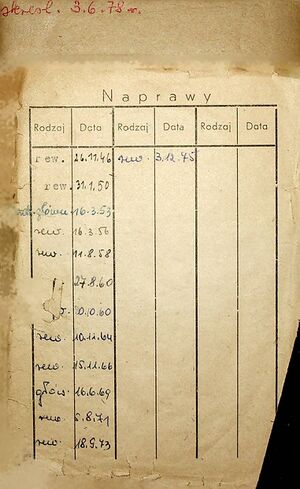 skreśl. 3.6.78 r.
Naprawy
Rodzaj Data Rodzaj Data Rodzaj Data
rew. 26.11.46 rew. 3.12.75
rew. 31.1.50
główna 16.3.53
rew. 16.3.56
rew. 11.8.58
27.8.60
10.60
rew. 10.12.64
rew. 15.11.66
głów. 16.6.69
rew. 5.8.71
rew. 18.9.73